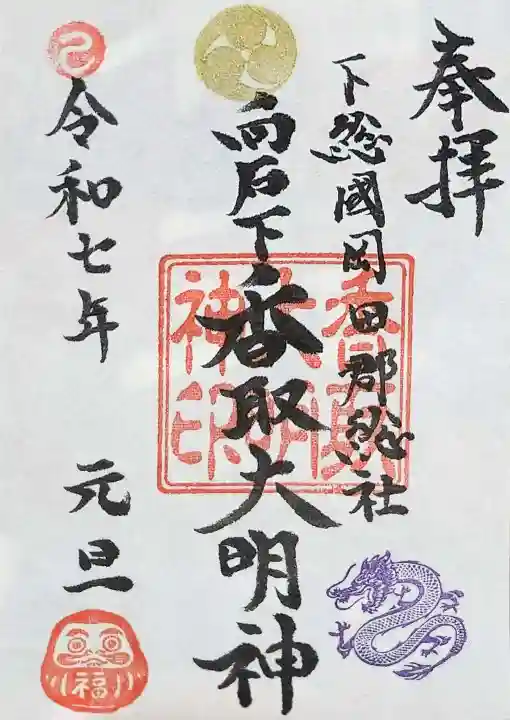 奉拝
下総國岡田郡総社
向石下香取大明神
香取大明神印
巳
令和七年 元旦
福